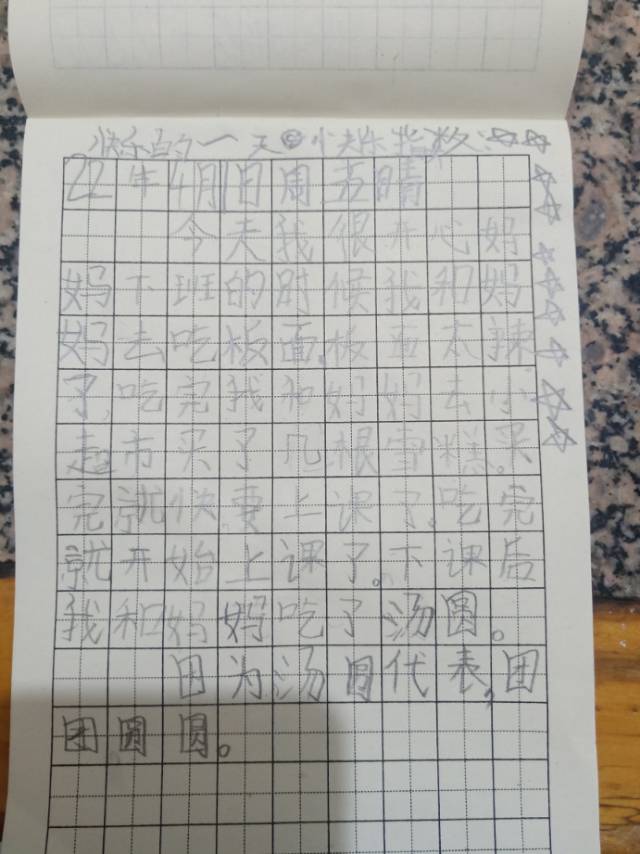 快乐的一天☺快乐指数:☆☆☆☆☆☆☆☆☆☆
22年4月1日周五晴
今天我很开心妈
妈下班的时候我和妈
妈去吃板面。板面太辣
了,吃完我和妈妈去小
超市买了几根雪糕。买
完就快要上课了。吃完
就开始上课了。下课后
我和妈妈吃了汤圆。
因为汤圆代表,团
团圆圆。